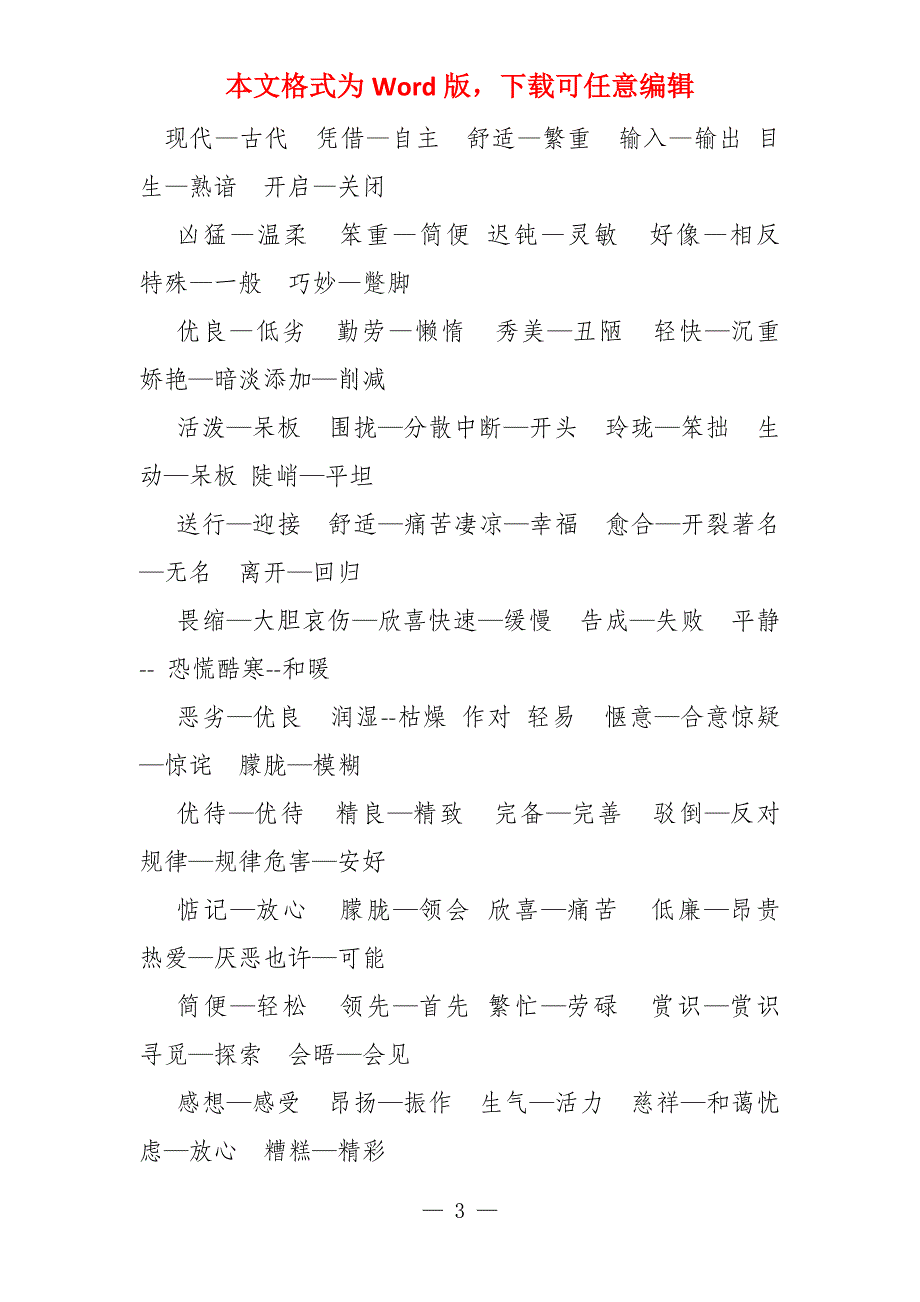 本文格式为 Word 版，下载可任意编辑
现代—古代 凭借—自主 舒适—繁重 输入—输出 目
生—熟谙 开启—关闭
凶猛—温柔 笨重—简便 迟钝—灵敏 好像—相反
特殊—一般 巧妙—蹩脚
优良—低劣 勤劳—懒惰 秀美—丑陋 轻快—沉重
娇艳—暗淡添加—削减
活泼—呆板 围拢—分散中断—开头 玲珑—笨拙 生
动—呆板 陡峭—平坦
送行—迎接 舒适—痛苦凄凉—幸福 愈合—开裂著名
—无名 离开—回归
畏缩—大胆哀伤—欣喜快速—缓慢 告成—失败 平静
-- 恐慌酷寒--和暖
恶劣—优良 润湿--枯燥 作对 轻易 惬意—合意惊疑
—惊诧 朦胧—模糊
优待—优待 精良—精致 完备—完善 驳倒—反对
规律—规律危害—安好
惦记—放心 朦胧—领会 欣喜—痛苦 低廉—昂贵
热爱—厌恶也许—可能
简便—轻松 领先—首先 繁忙—劳碌 赏识—赏识
寻觅—探索 会晤—会见
感想—感受 昂扬—振作 生气—活力 慈祥—和蔼忧
虑—放心 糟糕—精彩
— 3 —